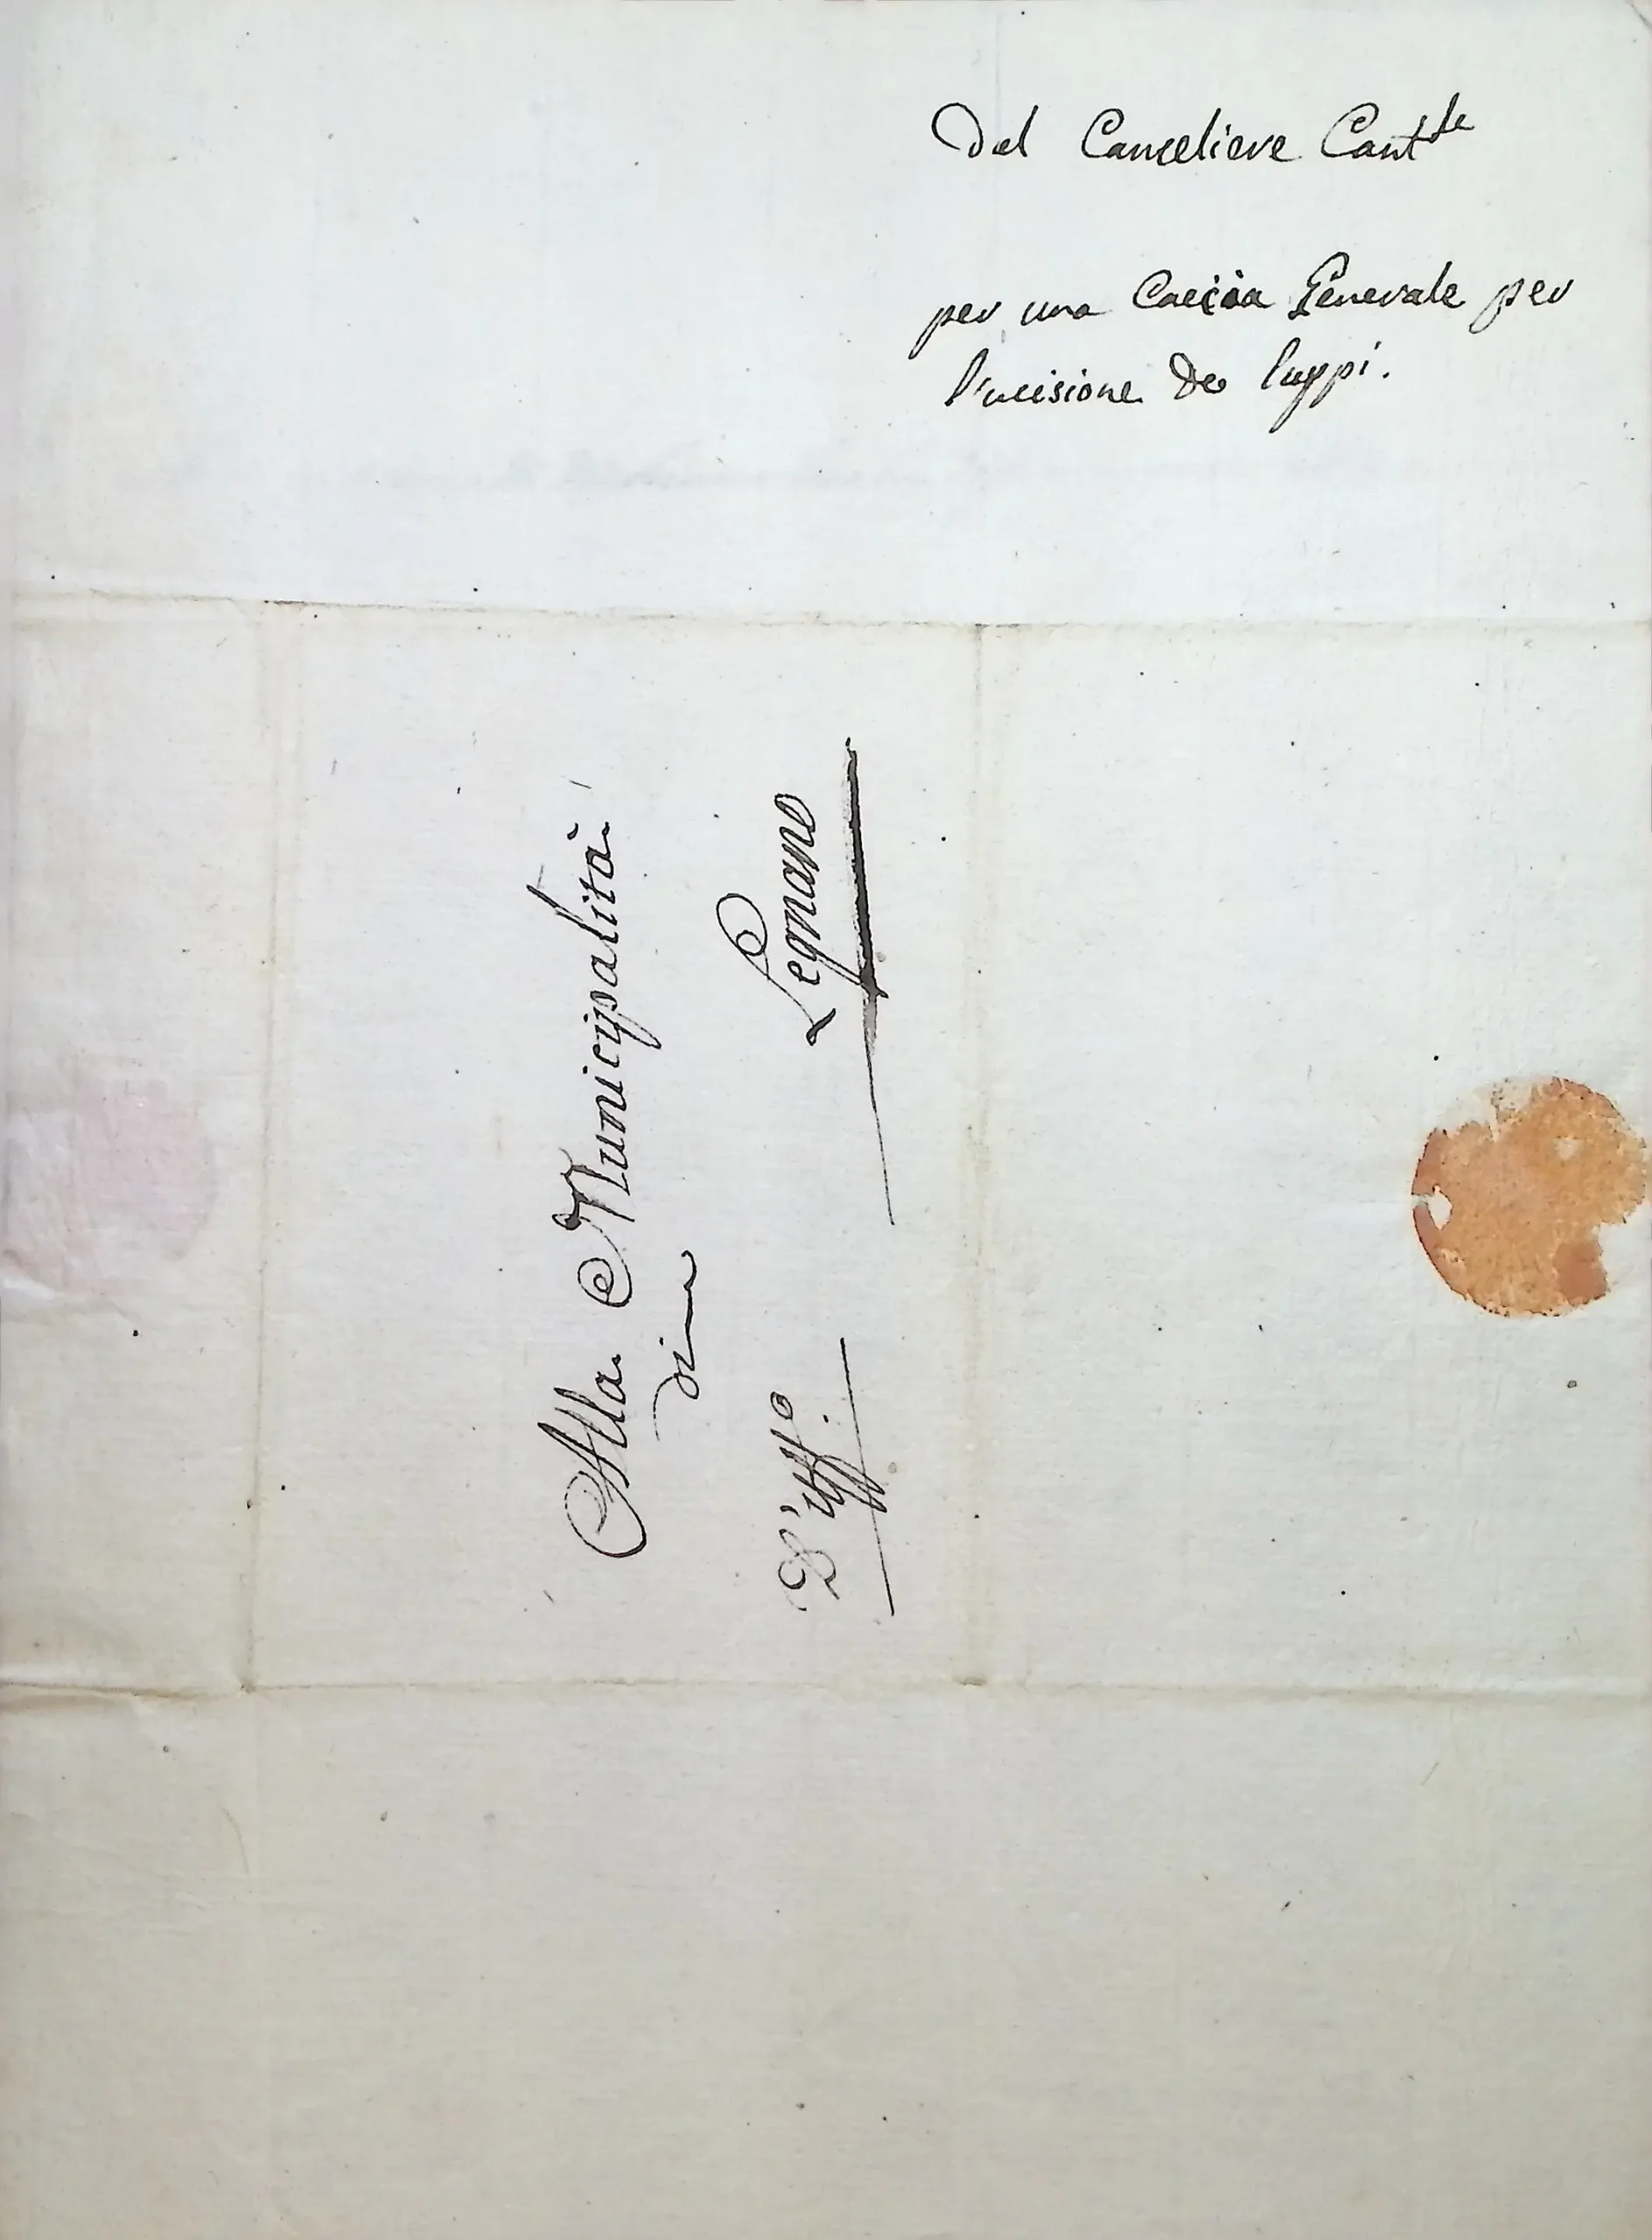 Dal Canceliere Cant.le
per una Caccia Generale per
l'ucisione de luppi.
Alla Municipalità
di
D'uff.o Legnano